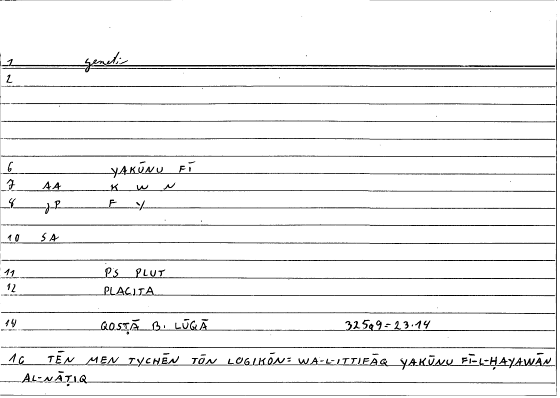 1 geneti
2
6 YAKŪNU FĪ
7 AA K W N
8 JP F Y
10 SA
11 PS PLUT
12 PLACITA
14 QOSṬĀ B. LŪQĀ 325q9=23.14
16 TĒN MEN TYCHĒN TŌN LOGIKŌN= WA-L-ITTIFĀQ YAKŪNU FĪ-L-ḤAYAWĀN
AL-NĀṬIQ